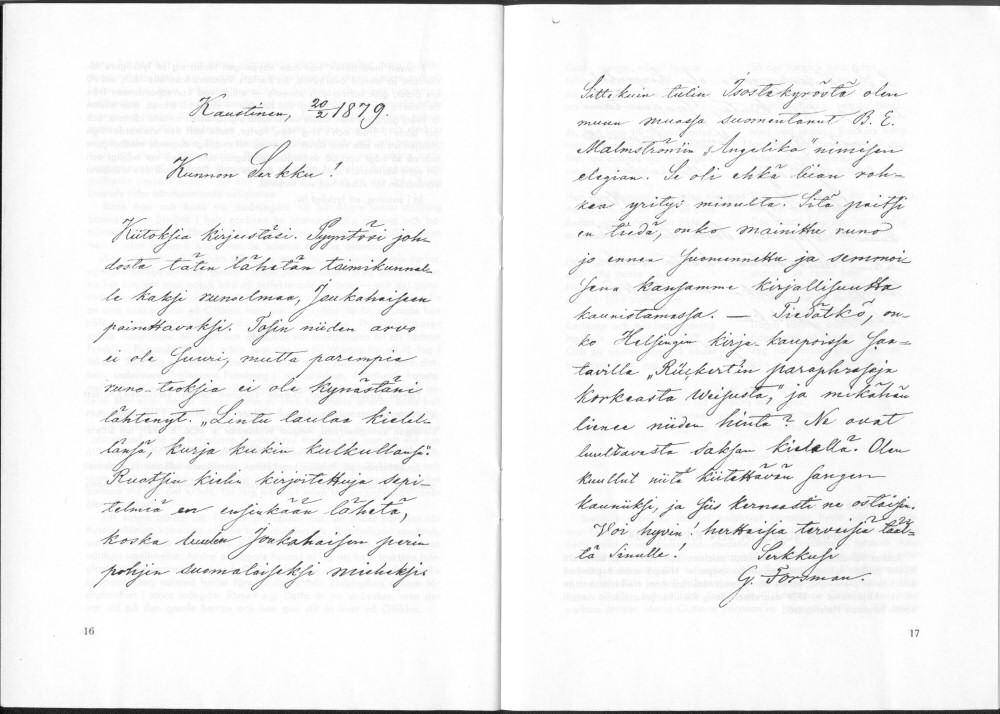 Kaustinen, 20/2 1879.
Kunnon Serkku!
Kiitoksia kirjeestäsi. Pyyntösi joh-
dosta täten lähetän toimikunnal-
le kaksi runoelmaa, Joukahaiseen
painettavaksi. Tosin niiden arvo
ei ole suuri, mutta parempia
runo-teoksia ei ole kynästäni
lähtenyt. „Lintu laulaa kielel-
länsä, kurja kukin kulkullansa."
Ruotsin kielin kirjoitettuja sepi-
telmiä en ensinkään lähetä,
koska luulen Joukahaisen perin
pohjin suomalaiseksi mieheksi.
16
Sitte kuin tulin Isostakyröstä olen
muun muassa suomentanut B. E.
Malmströmin „Angelika" nimisen
elegian. Se oli ehkä liian roh-
kea yritys minulta. Sitä paitsi
en tiedä, onko mainittu runo
jo ennen suomennettu ja semmoi-
sena kansamme kirjallisuutta
kaunistamassa. — Tiedätkö, on-
ko Helsingin kirja-kaupoissa saa-
tavilla „Rückert'in paraphraseja
korkeasta weisusta," ja mikähän
lienee niiden hinta? Ne ovat
luultavasti saksan kielellä. Olen
kuullut niitä kiitettävän sangen
kauniiksi, ja siis kernaasti ne ostaisin.
Voi hyvin! herttaisia terveisiä tääl-
tä Sinulle! Serkkusi
G. Forsman.
17